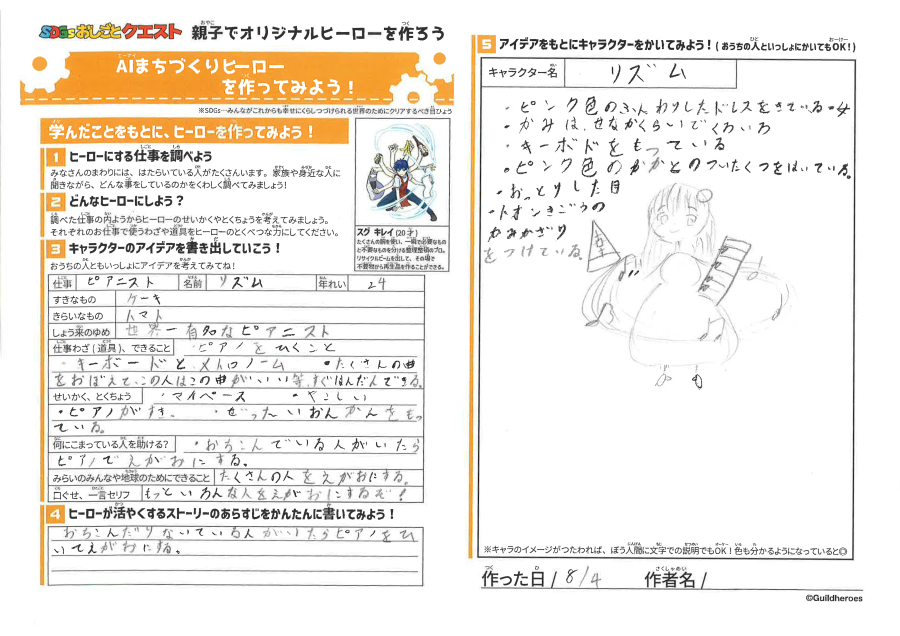 SDGsおしごとクエスト 親子でオリジナルヒーローを作ろう
AIまちづくりヒーロー
を作ってみよう！
※SDGs…みんながこれからも幸せにくらしつづけられる世界のためにクリアするべき目ひょう
学んだことをもとに、ヒーローを作ってみよう！
1 ヒーローにする仕事を調べよう
みなさんのまわりには、はたらいている人がたくさんいます。家族や身近な人に
聞きながら、どんな事をしているのかをくわしく調べてみましょう!
2 どんなヒーローにしよう？
調べた仕事の内ようからヒーローのせいかくやとくちょうを考えてみましょう。
それぞれのお仕事で使うわざや道具をヒーローのとくべつな力にしてください。
スグ キレイ (20才)
たくさんの腕を使い、一瞬で必要なもの
と不要なものを分ける整理整頓のプロ。
リサイクルビームを出して、その場で
不要物から再生品を作ることができる。
3 キャラクターのアイデアを書き出していこう！
おうちの人ともいっしょにアイデアを考えてみてね!
仕事 ピアニスト 名前 リズム 年れい 24
すきなもの ケーキ
きらいなもの トマト
しょう来のゆめ 世界一有名なピアニスト
仕事わざ(道具)、できること ・ピアノをひくこと
・キーボードとメトロノーム ・たくさんの曲
をおぼえて、この人はこの曲がいい等、すぐはんだんできる。
せいかく、とくちょう ・マイペース ・やさしい
・ピアノがすき、 ・ぜったいおんかんをもっ
ている。
何にこまっている人を助ける? ・おちこんでいる人がいたら
ピアノでえがおにする。
みらいのみんなや地球のためにできること たくさんの人をえがおにする。
口ぐせ、一言セリフ もっといろんな人をえがおにするぞ！
4 ヒーローが活やくするストーリーのあらすじをかんたんに書いてみよう！
おちこんだりないている人がいたらピアノをひ
いてえがおにする。
5 アイデアをもとにキャラクターをかいてみよう！(おうちの人といっしょにかいてもOK!)
キャラクター名 リズム
・ピンク色のふんわりしたドレスをきている。
・かみは、せなかくらいでくろいろ
・キーボドをもっている
・ピンク色のかかとのついたくつをはいている。
・おっとりした目
・トオンきごうの
かみかざり
をつけている。
※キャラのイメージがつたわれば、ぼう人間に文字での説明でもOK！色も分かるようになっていると◎
作った日/8/4 作者名/
©Guildheroes